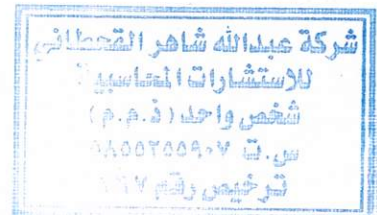 شركة عبدالله شاهر القحطاني
للاستشارات المحاسبية
شخص واحد (ذ.م.م)
س.ت ٥٨٥٥٢٥٥٩٠٧
ترخيص رقم